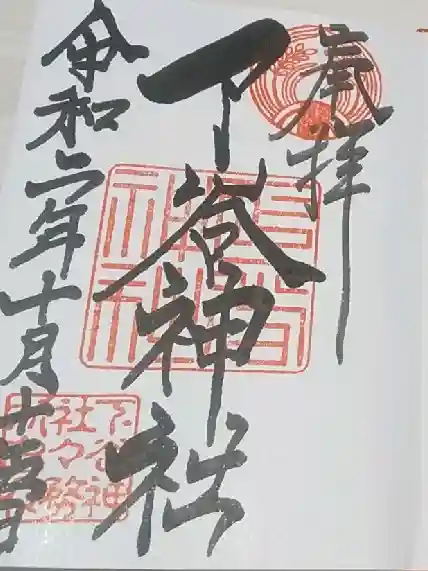 奉拝
下谷神社
令和二年十月十五日
下谷神
社々務